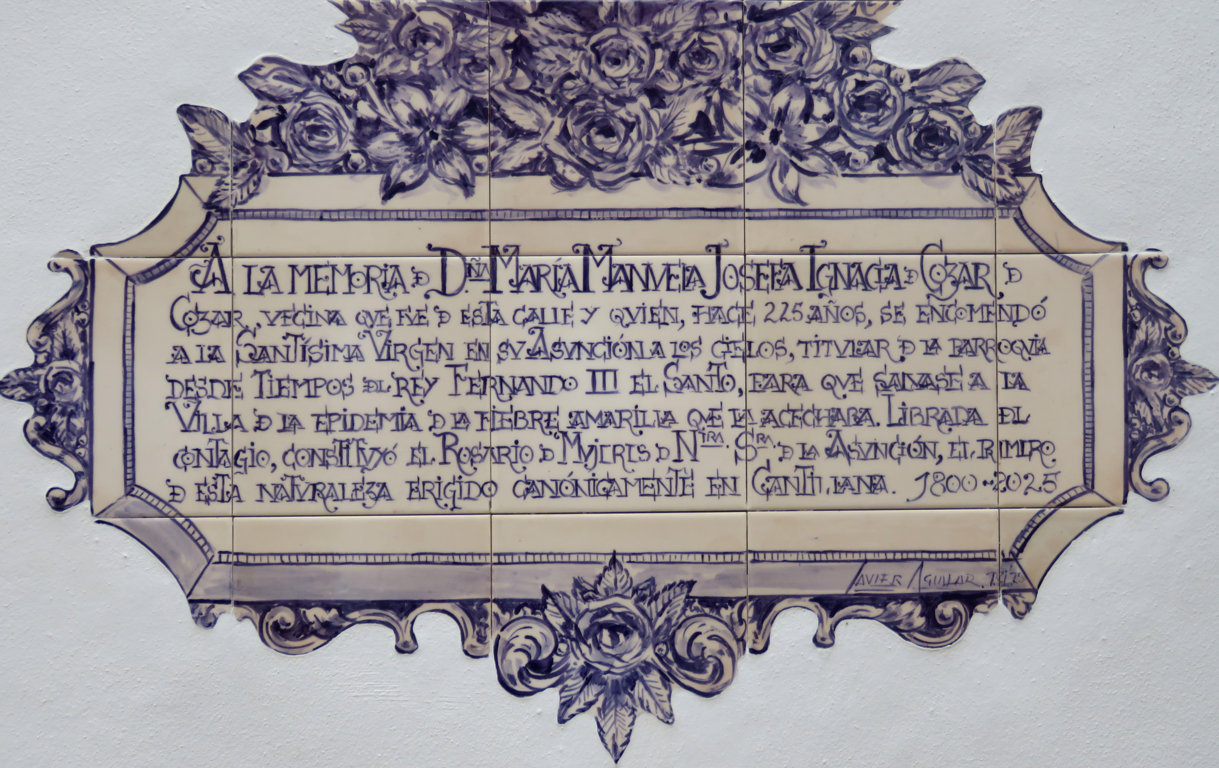 A LA MEMORIA D DÑA MARÍA MANUELA JOSEFA IGNACIA D COZAR D
COZAR, VECINA QUE FUE D ESTA CALLE Y QUIEN, HACE 225 AÑOS, SE ENCOMENDÓ
A LA SANTÍSIMA VIRGEN EN SU ASUNCIÓN A LOS CIELOS, TITULAR D LA PARROQUIA
DESDE TIEMPOS DL REY FERNANDO III EL SANTO, PARA QUE SALVASE A LA
VILLA D LA EPIDEMIA D LA FIEBRE AMARILLA QUE LA ACECHABA. LIBRADA DL
CONTAGIO, CONSTITUYÓ EL ROSARIO D MUJERES D NTRA. SRA. D LA ASUNCIÓN, EL PRIMERO
D ESTA NATURALEZA ERIGIDO CANÓNICAMENTE EN CANTILLANA. 1800-2025
JAVIER AGUILAR